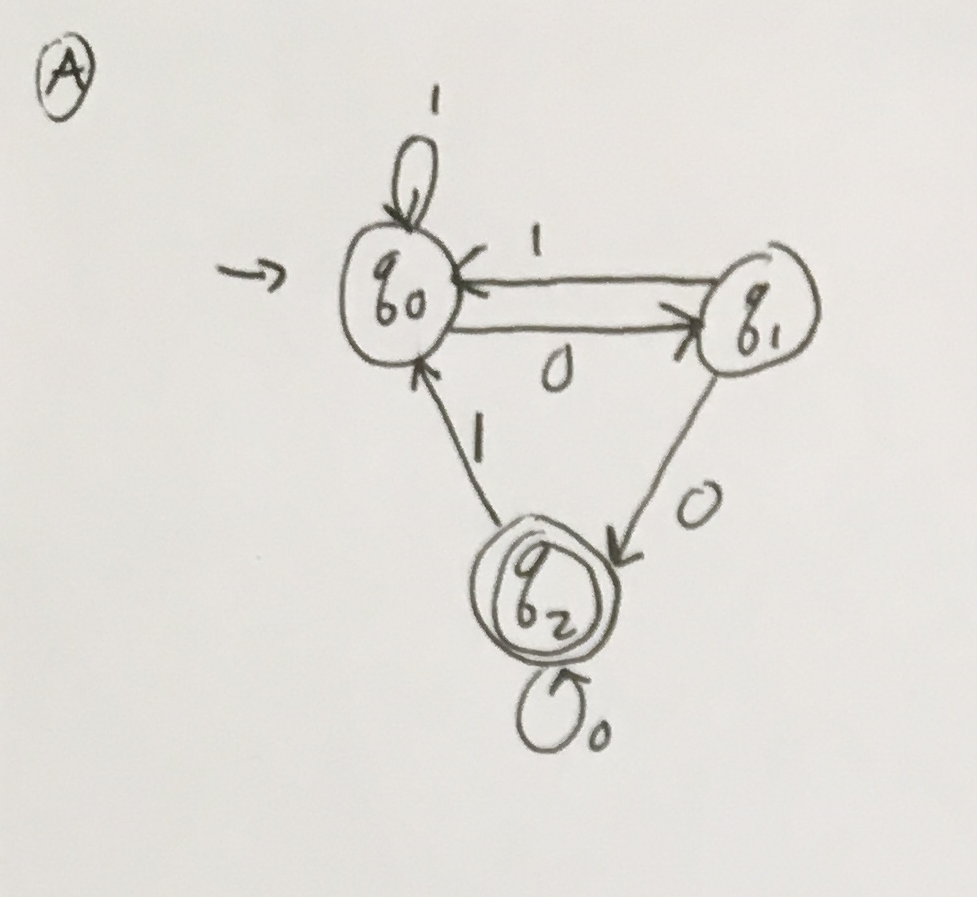 A
1
q0
1
q1
0
1
0
q2
0